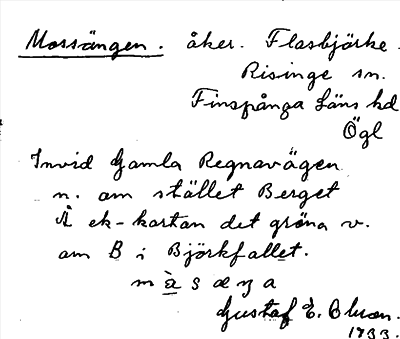 Mossängen. åker. Flasbjörke.
Risinge sn.
Finspånga Läns hd
Ögl
Invid Gamla Regnavägen
n. om stället Berget
Å ek-kartan det gröna v.
om B i Björkfallet.
Gustaf E. Olsson.
1933.